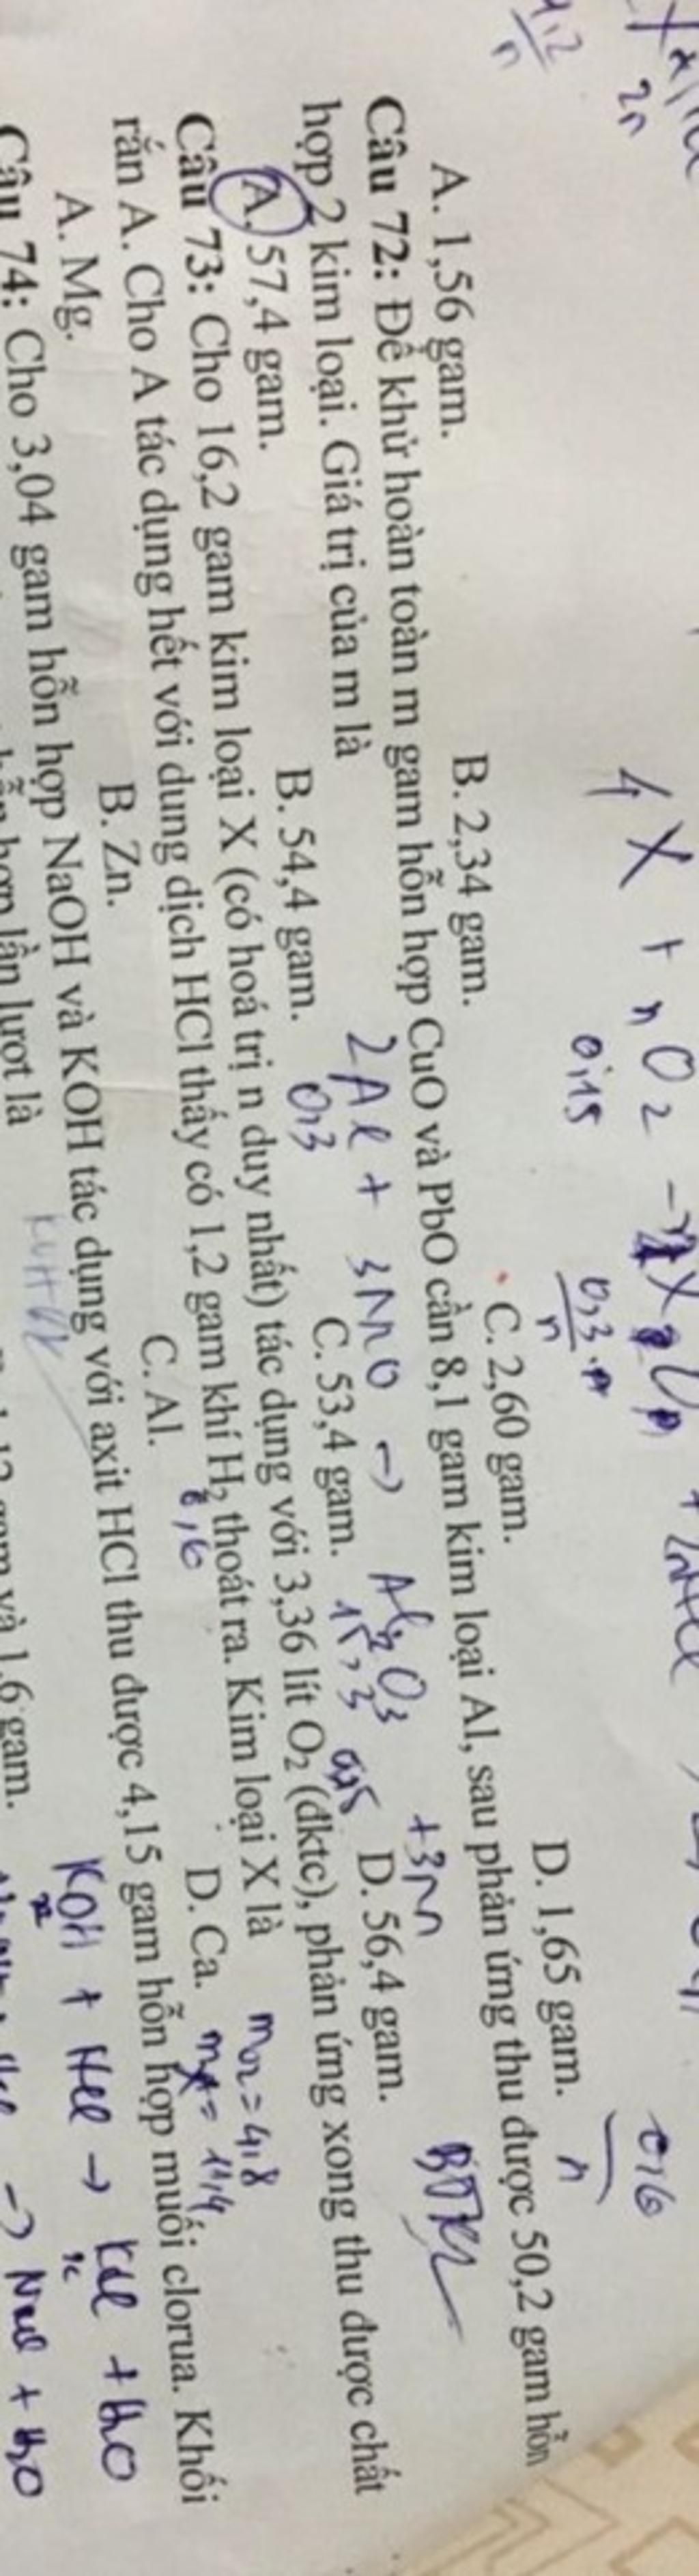 4 X + nO2 →
0,15
0,3
n
2n
n
0,6
n
A. 1,56 gam. B. 2,34 gam. C. 2,60 gam. D. 1,65 gam.
Câu 72: Để khử hoàn toàn m gam hỗn hợp CuO và PbO cần 8,1 gam kim loại Al, sau phản ứng thu được 50,2 gam hỗn
hợp 2 kim loại. Giá trị của m là
2Al + 3MO → Al2O3 + 3M
BTKL
0,3
15,3
A. 57,4 gam. B. 54,4 gam. C. 53,4 gam. D. 56,4 gam.
Câu 73: Cho 16,2 gam kim loại X (có hoá trị n duy nhất) tác dụng với 3,36 lít O2 (đktc), phản ứng xong thu được chất
rắn A. Cho A tác dụng hết với dung dịch HCl thấy có 1,2 gam khí H2 thoát ra. Kim loại X là
0,6
mO2 = 4,8
A. Mg. B. Zn. C. Al. D. Ca.
= 11,4
Câu 74: Cho 3,04 gam hỗn hợp NaOH và KOH tác dụng với axit HCl thu được 4,15 gam hỗn hợp muối clorua. Khối
KOH + HCl → KCl + H2O
x x
hỗn hợp lần lượt là
gam và 1,6 gam.
→ NaCl + H2O